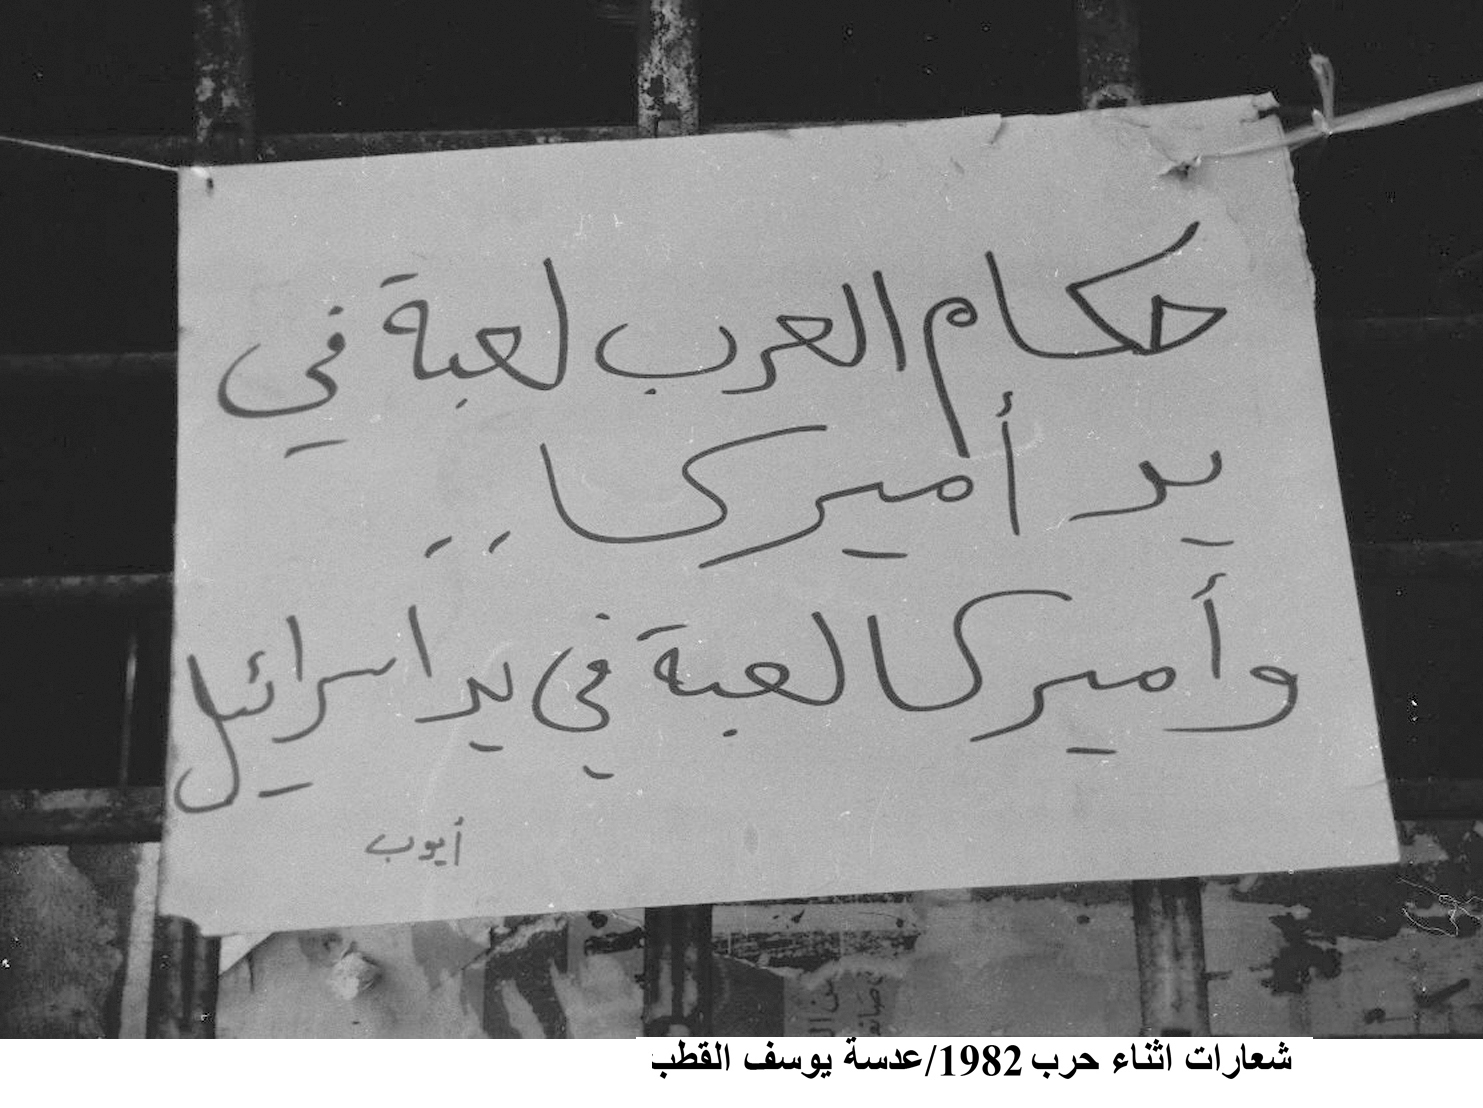 حكام العرب لعبة في
يد أميركا ..
وأميركا لعبة في يد اسرائيل
أيوب
شعارات اثناء حرب 1982/عدسة يوسف القطب